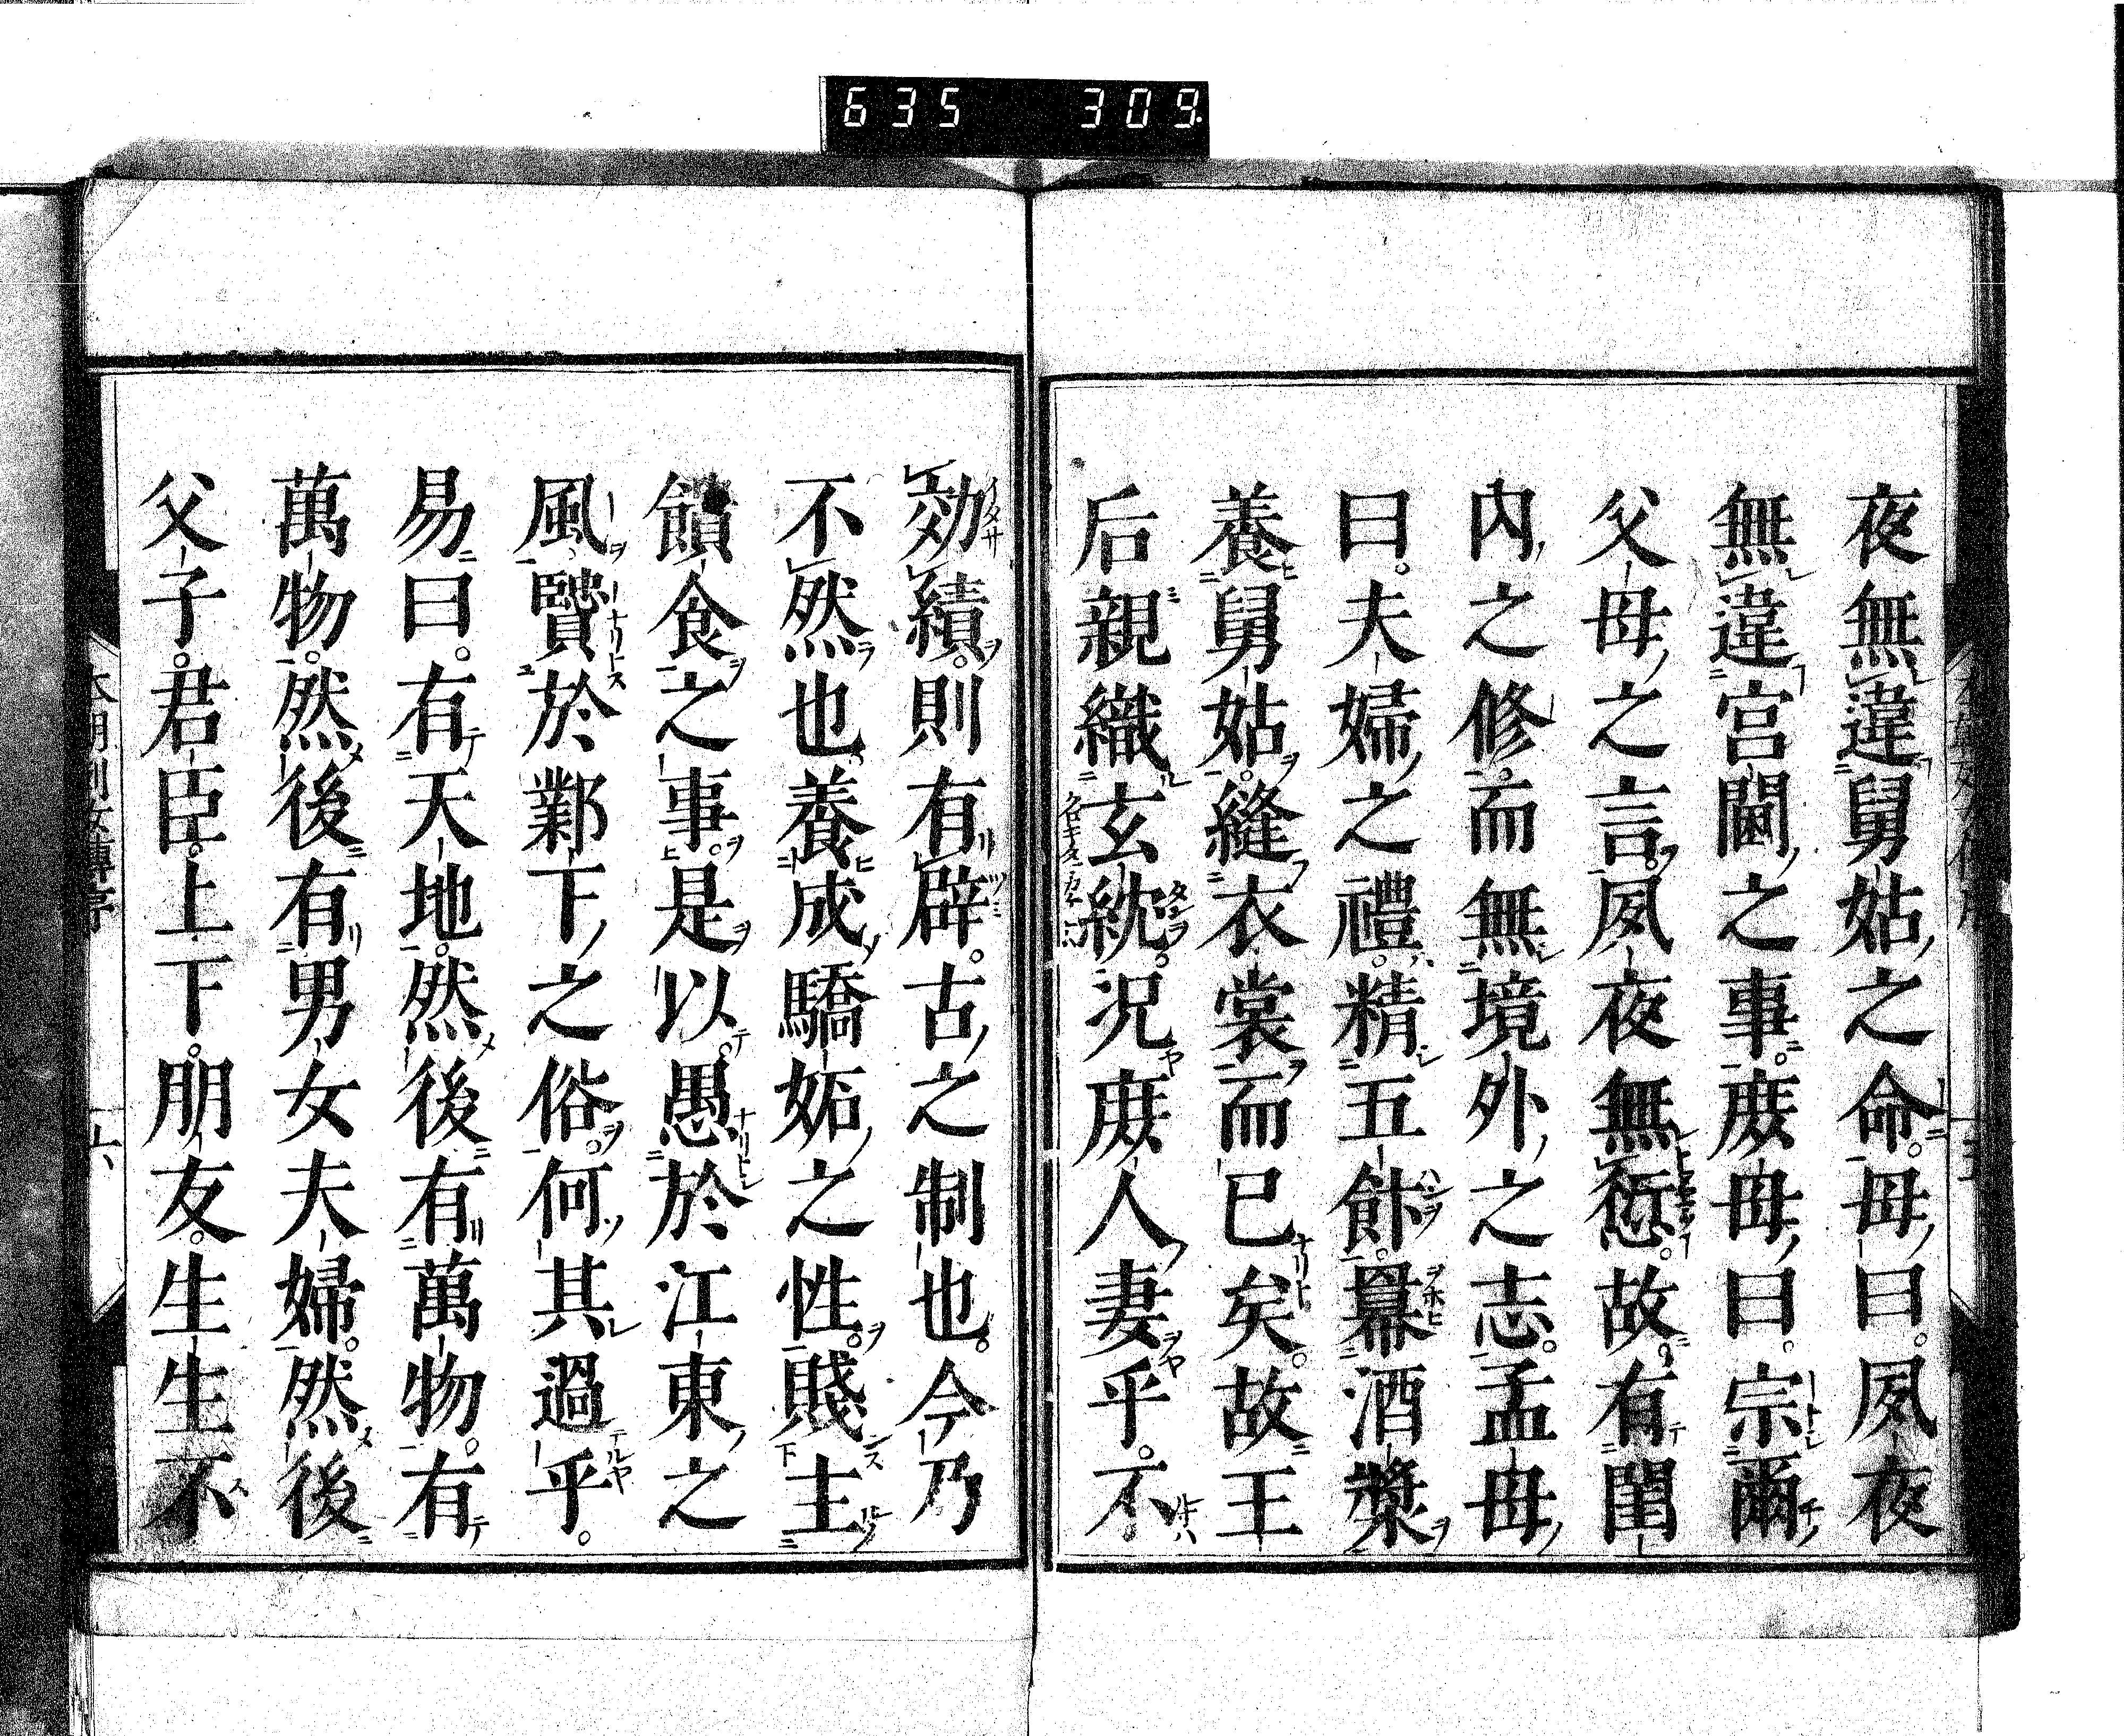 635 309
夜無違舅姑之命。母曰。夙夜
無違宮闈之事。庶母曰。宗爾
父母之言。夙夜無愆。故有閨
內之修。而無境外之志。孟母
曰。夫婦之禮。精五飰。冪酒漿
養舅姑。縫衣裳而已矣。故王
后親織玄紞。況庶人妻乎。不
効績。則有辟。古之制也。今乃
不然也。養成驕妬之性。賤主
饋食之事。是以愚於江東之
風。贒於鄴下之俗。何其過乎。
易曰。有天地。然後有萬物。有
萬物。然後有男女夫婦。然後
父子。君臣。上下。朋友。生生不
本朝列女傳序
六